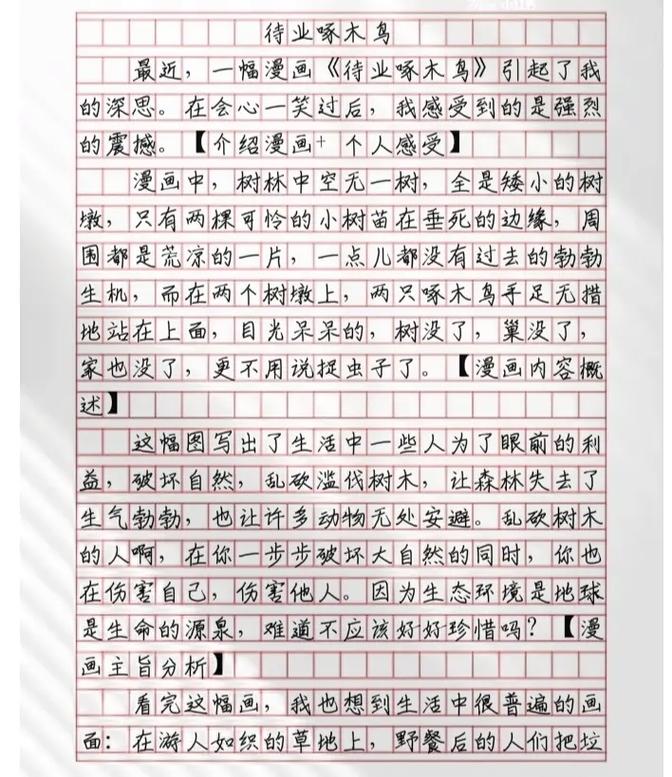 待业啄木鸟
最近，一幅漫画《待业啄木鸟》引起了我
的深思。在会心一笑过后，我感受到的是强烈
的震撼。【介绍漫画+个人感受】
漫画中，树林中空无一树，全是矮小的树
墩，只有两棵可怜的小树苗在垂死的边缘，周
围都是荒凉的一片，一点儿都没有过去的勃勃
生机，而在两个树墩上，两只啄木鸟手足无措
地站在上面，目光呆呆的，树没了，巢没了，
家也没了，更不用说捉虫子了。【漫画内容概
述】
这幅图写出了生活中一些人为了眼前的利
益，破坏自然，乱砍滥伐树木，让森林失去了
生气勃勃，也让许多动物无处安避。乱砍树木
的人啊，在你一步步破坏大自然的同时，你也
在伤害自己，伤害他人。因为生态环境是地球
是生命的源泉，难道不应该好好珍惜吗？【漫
画主旨分析】
看完这幅画，我也想到生活中很普遍的画
面：在游人如织的草地上，野餐后的人们把垃